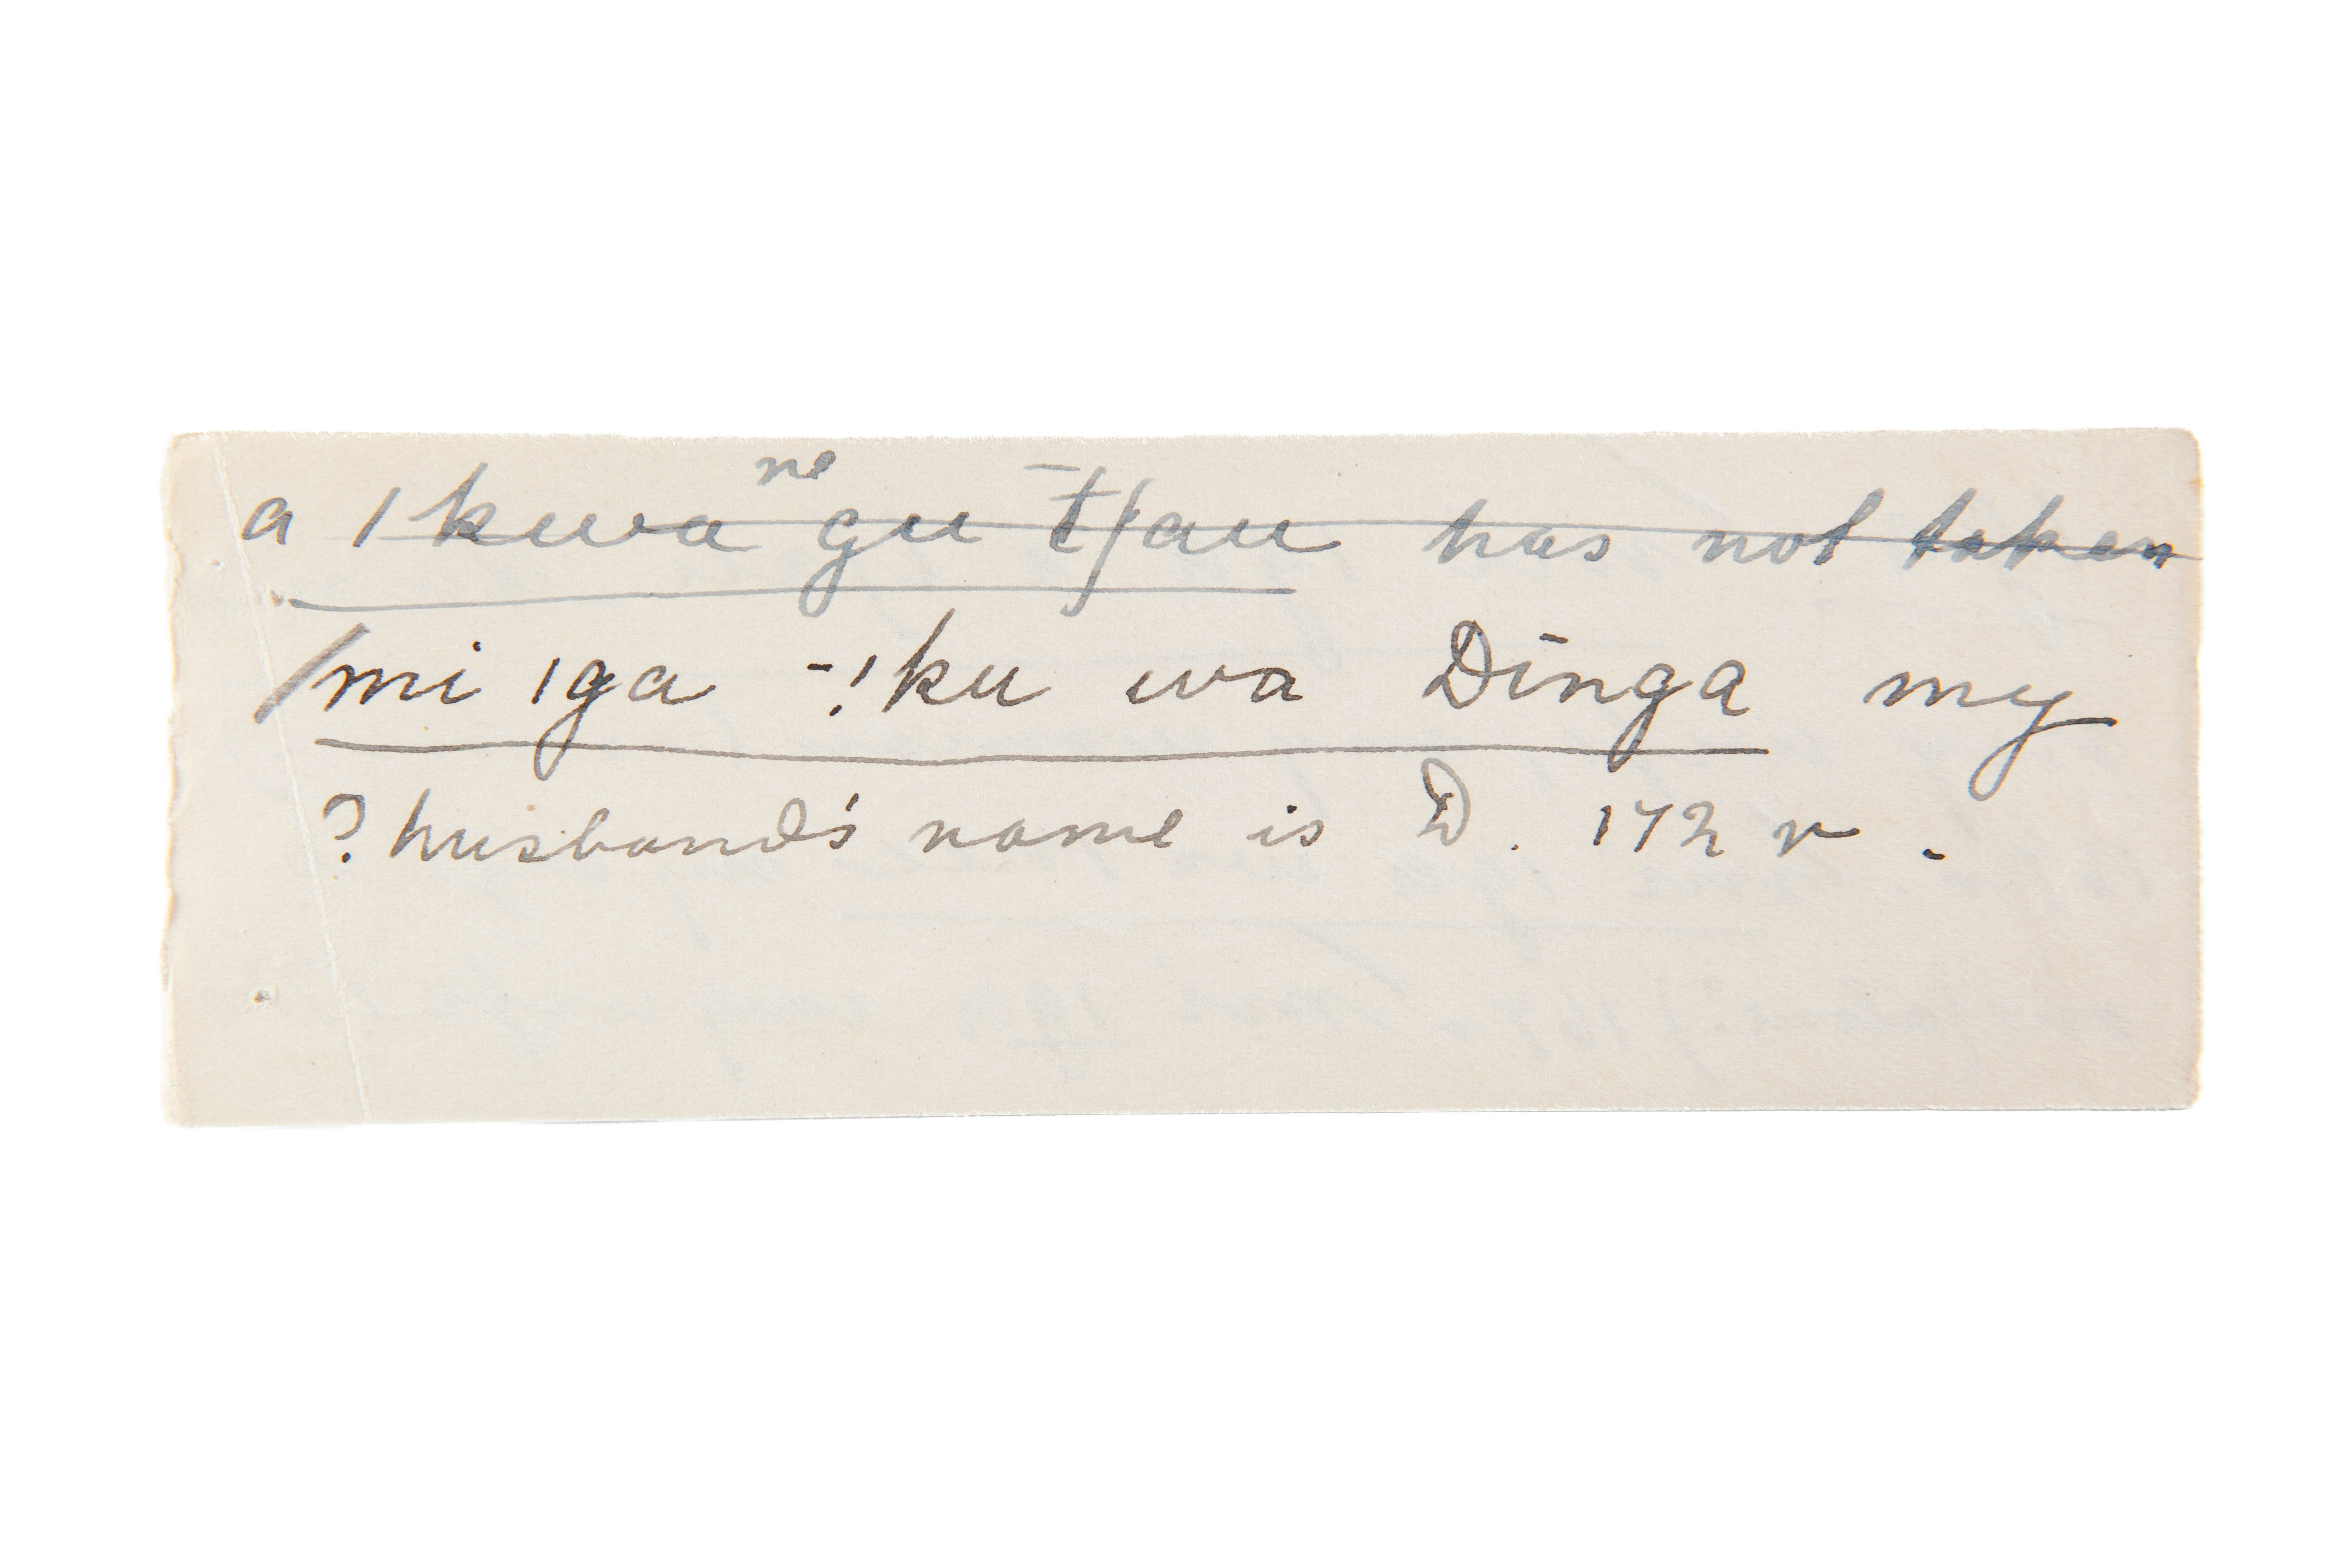 a /kwa ne gu t̄ʃau has not taken
/mi /ga -!ku wa Dīnga my
? husband's name is D. 172 r.